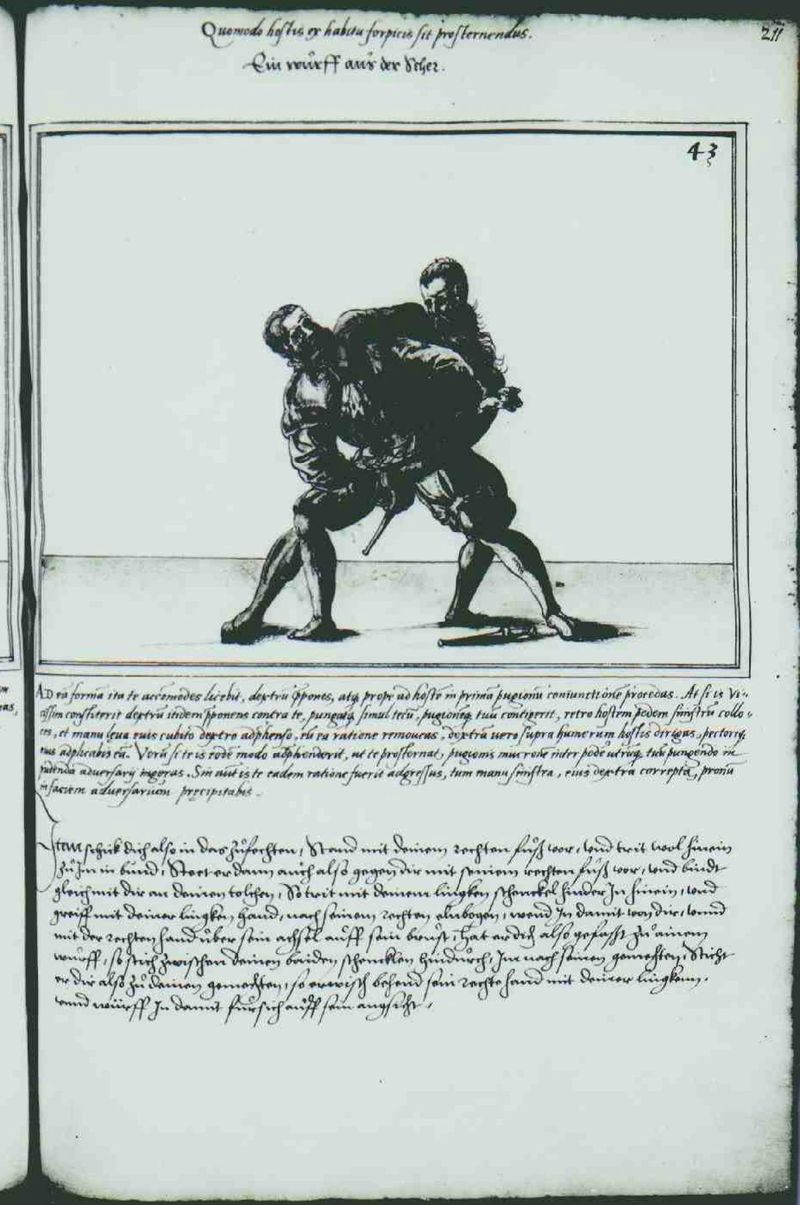 Quomodo hostis ex habitu forpicis sit prosternendus.
211
Ein wurff aus der Scher.
43
AD eā formā ita te accomodes licebit, dextrū ꝓpones, atq; prope ad hostē in prima pugionū coniunctione procedas. At si is Vi-
cissim constiterit dextrū itidem ꝓponens contra te, pungatq; simul tecū, pugionēq; tuū contigerit, retro hostem pedem sinistrū collo-
ces, et manu leua eius cubito dextro adphenso, eū ea ratione remoueas, dextrā vero supra humerum hostis dirigas, pectoriq;
eius adplicabis eā. Verū si te is eodē modo adphenderit, ut te prosternat, pugionis mucrone inter pedes utrosq; tuos pungendo in
pudenda adversarij ingeras. Sin aūt is te eadem ratione fuerit adgressus, tum manu sinistra, eius dextra correpta, pronū
in faciem adversarium præcipitabis.
Item schick dich also in das zufechten, Stand mit deinem rechten fuß vor, vnd trit wol hinein
zu Im in bund, Steet er dann auch also gegen dir mit seinem rechten fuß vor, vnd bindt
gleich mit dir an deinen tolchen, So trit mit deinem lingken schenckel hinder In hinein, vnd
greiff mit deiner lingken hand, nach seinem rechten elnbogen, wend In damit von dir, vnnd
mit der rechten hand über sein achsel auff sein brust, hat er dich also gefasst zu ainem
wurff, so stich zwischen deinen baiden schencklen hindurch, Im nach seinen gemechten, Sticht
er dir also zu deinen gemechten, so erwisch behend sein rechte hand mit deiner lingkenn,
vnnd würff In damit fürsich auff sein angsicht,